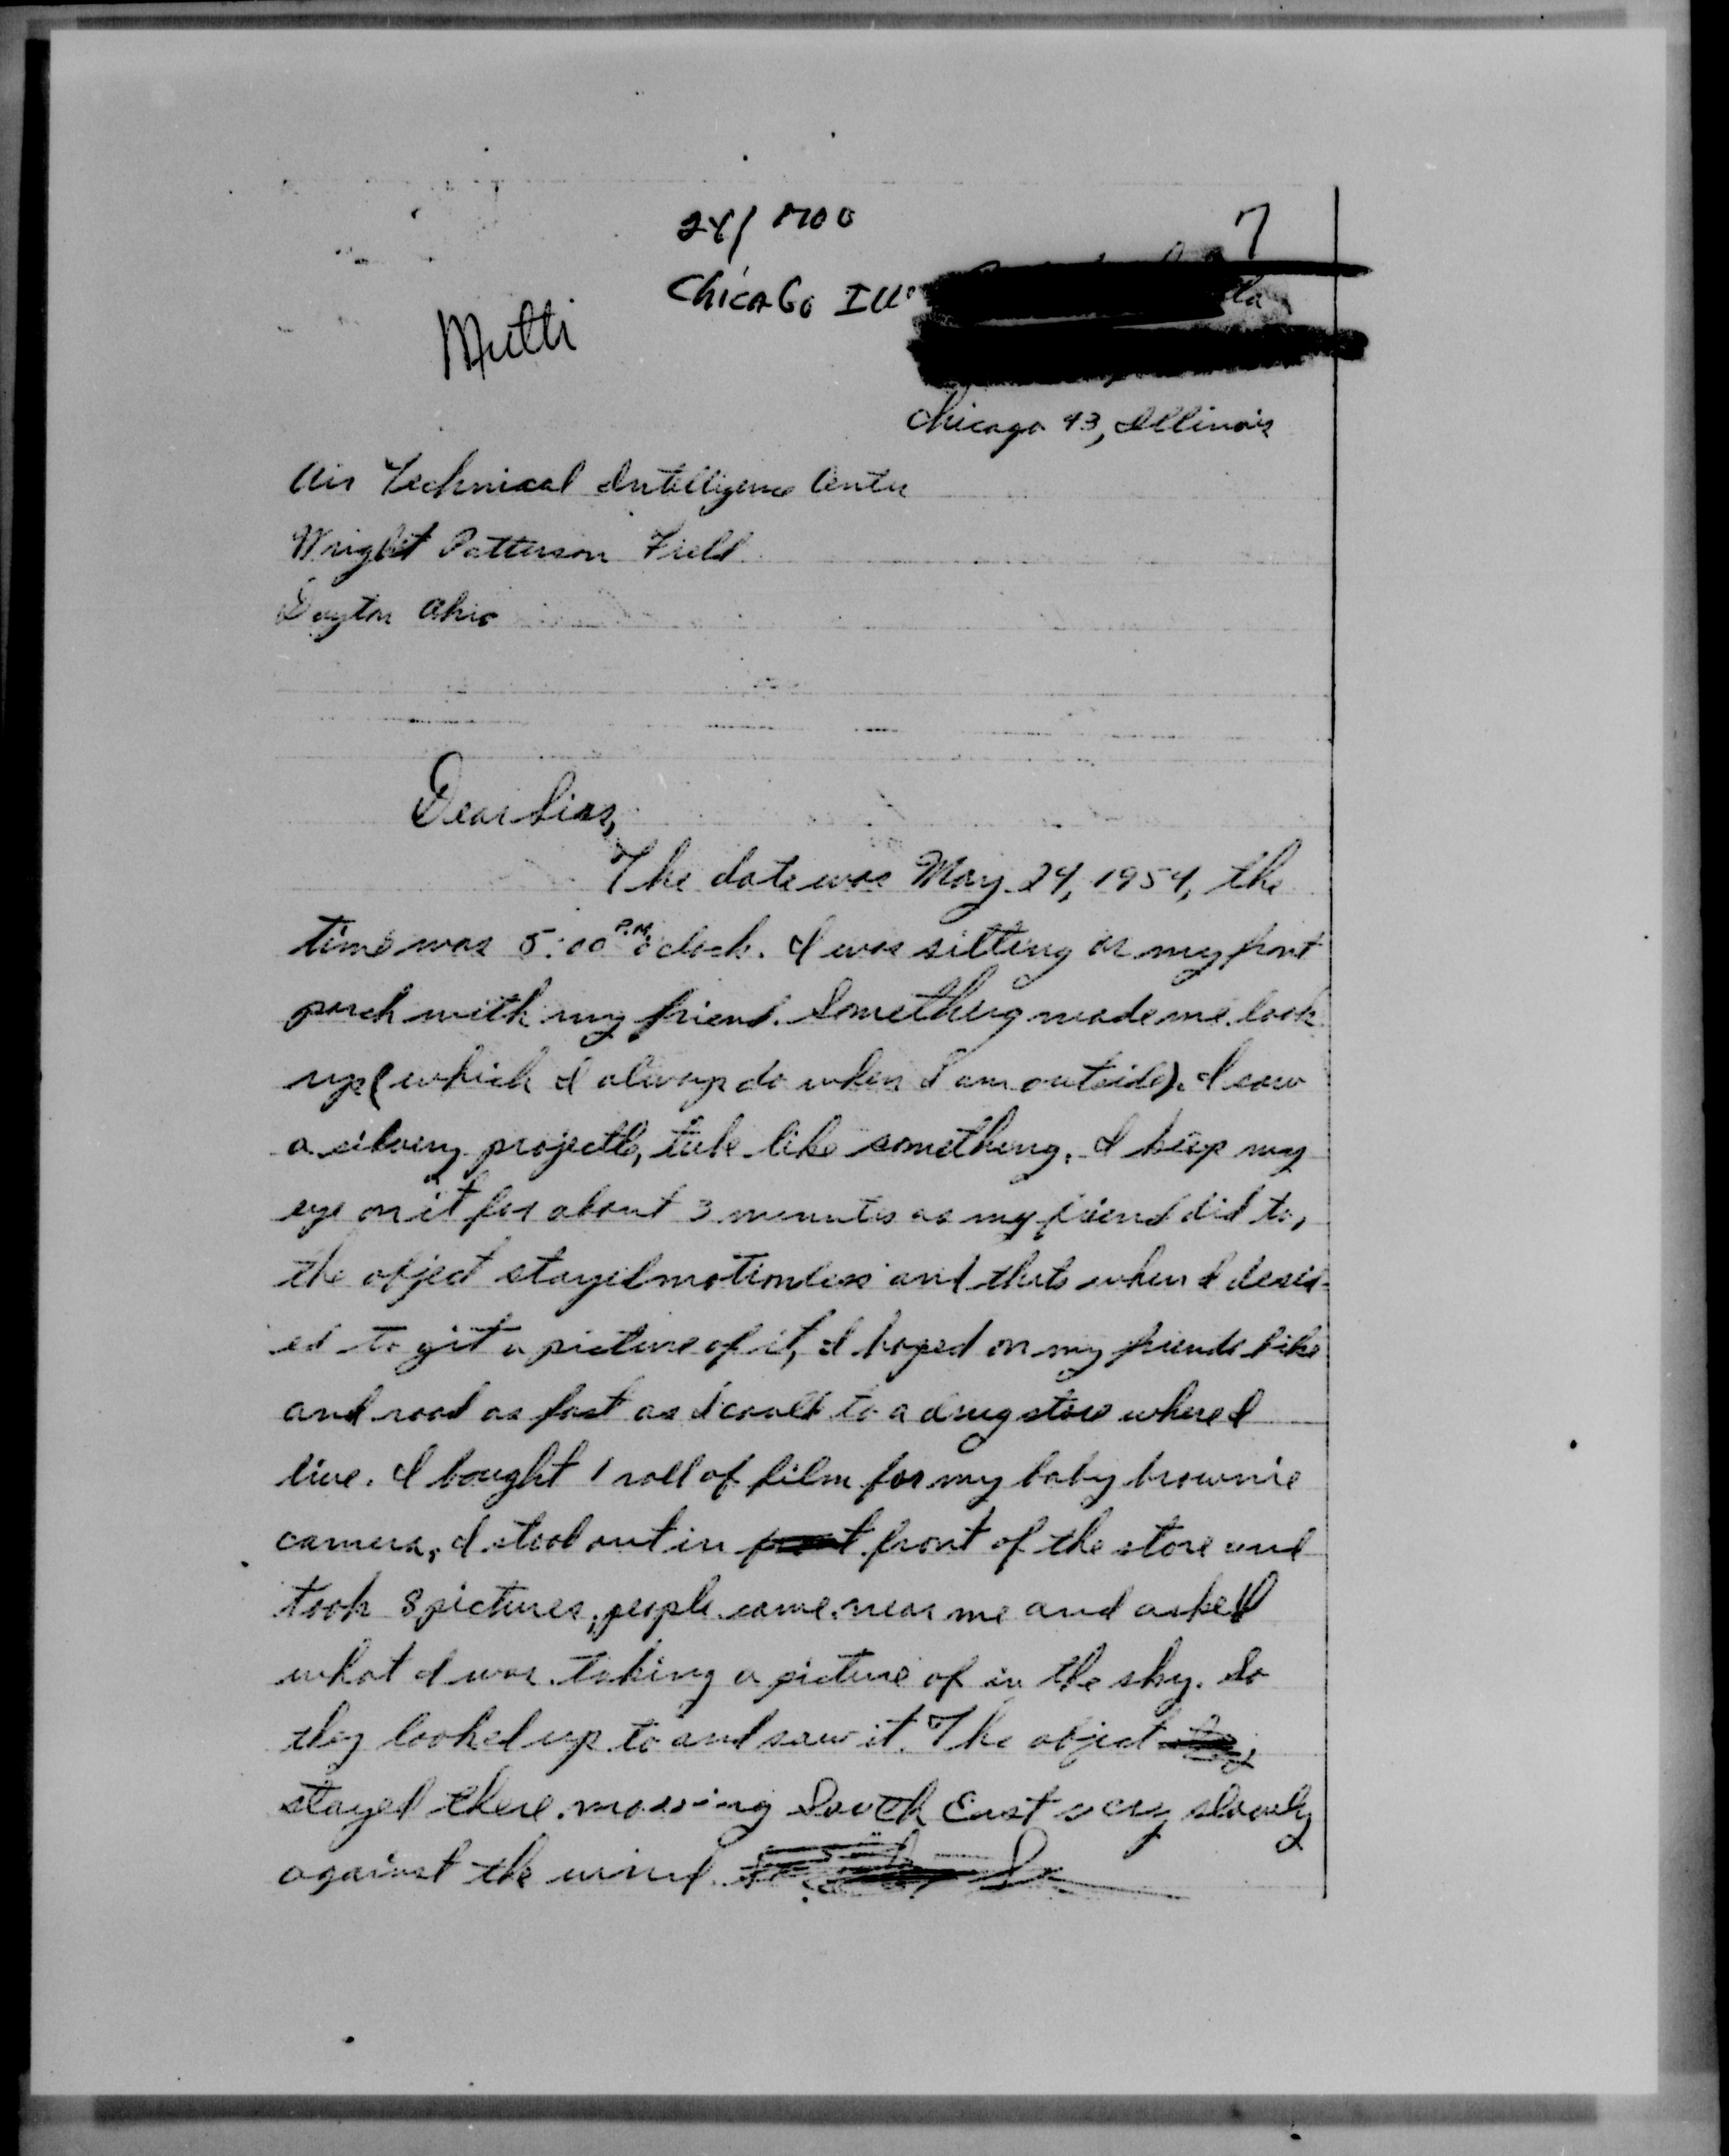 24/1700
7
Chicago Ill.
Multi
Chicago 43, Illinois
Air Technical Intelligence Center
Wright Patterson Field
Dayton Ohio
Dear Sirs,
The date was May 24, 1954, the
time was 5:00 P.M. o'clock. I was sitting on my front
porch with my friend. Something made me look
up (which I always do when I am outside). I saw
a silvery projectle, tube like something. I keep my
eye on it for about 3 minutes as my friend did to,
the object stayed motionless and thats when I desid-
ed to get a picture of it, I hoped on my friends bike
and road as fast as I could to a drug store where I
live. I bought 1 roll of film for my baby brownie
camera, I stood out in front of the store and
took 8 pictures, people came near me and asked
what I was taking a picture of in the sky. So
they looked up to and saw it. The object
stayed there moving South East very slowly
against the wind.